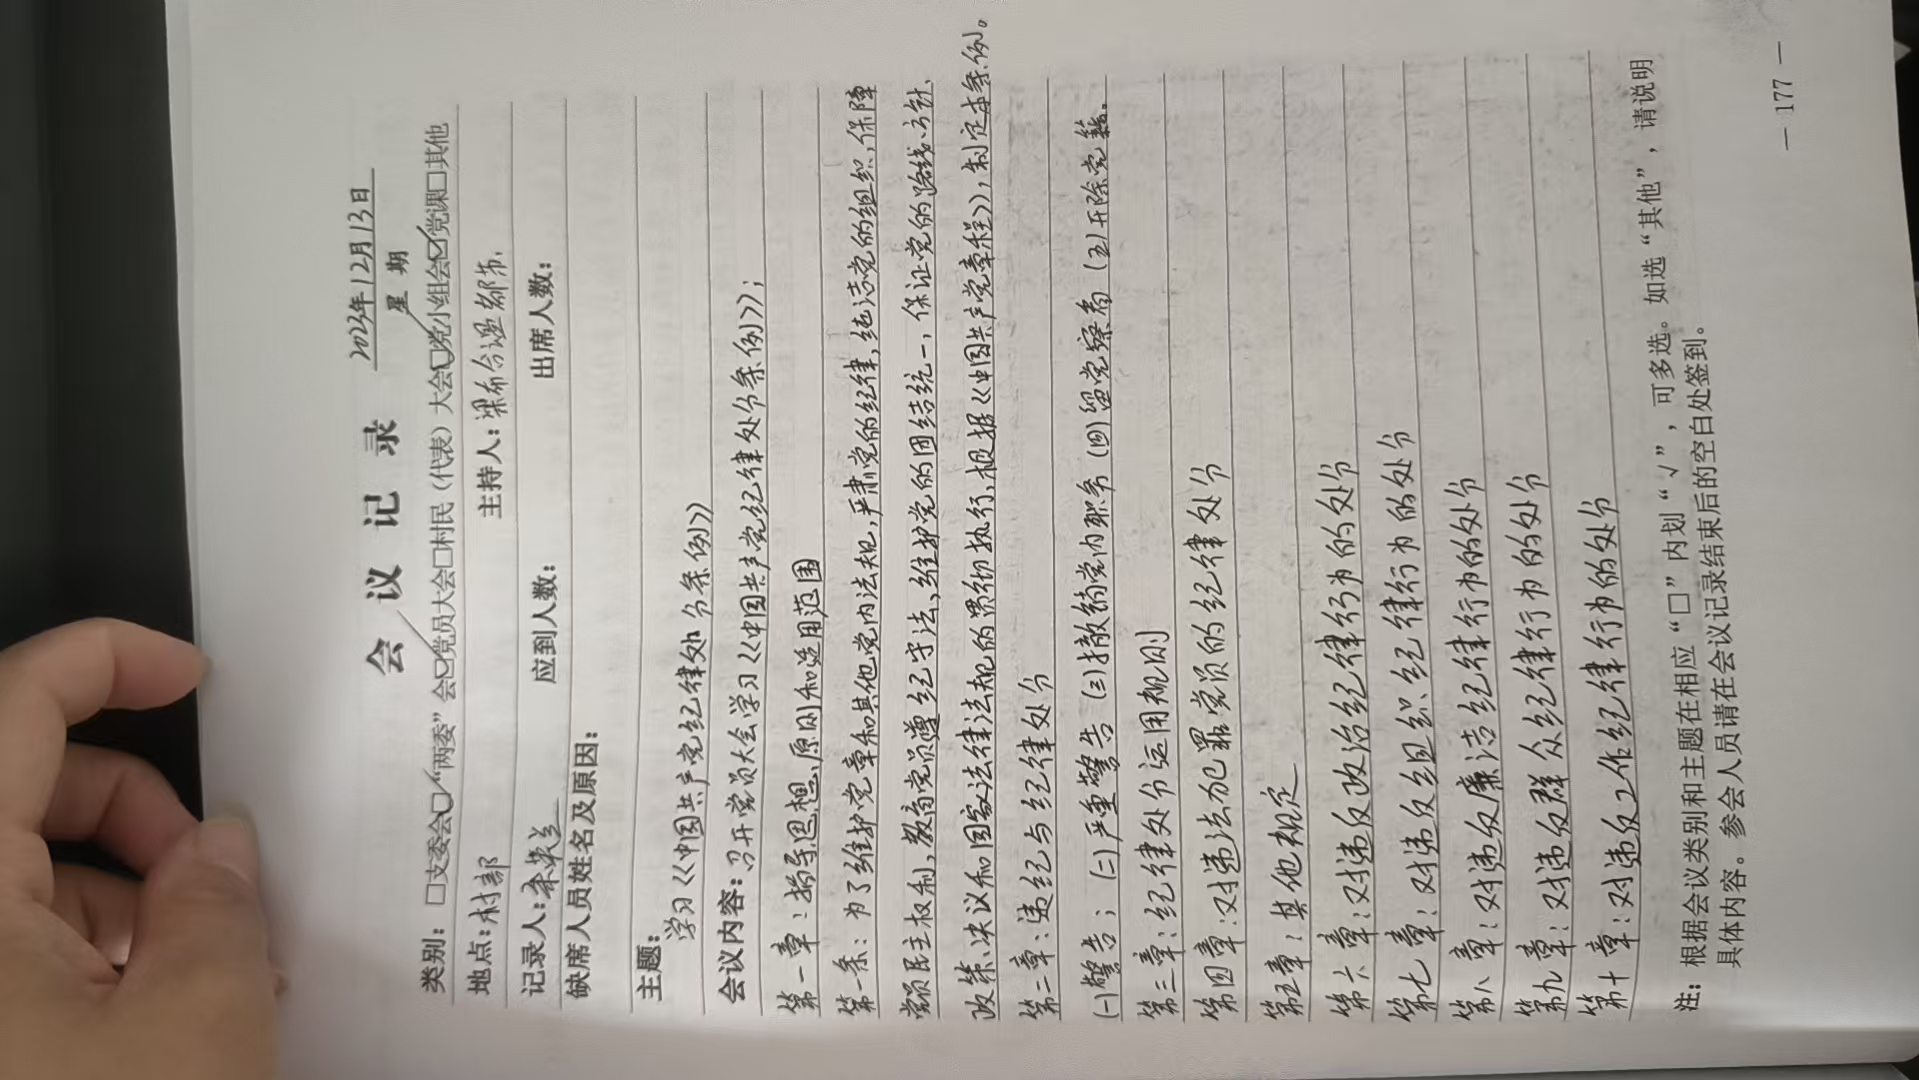 会 议 记 录
2023年12月13日
星 期
类别：□支委会□“两委”会□党员大会□村民（代表）大会□党小组会□党课□其他
地点：村部 主持人：梁布
记录人： 应到人数： 出席人数：
缺席人员姓名及原因：
主题：
学习《中国共产党纪律处分条例》
会议内容：召开党员大会学习《中国共产党纪律处分条例》；
第一章：指导思想、原则和适用范围
第一条：为了维护党章和其他党内法规，严肃党的纪律，纯洁党的组织，保障
党员民主权利，教育党员遵纪守法、维护党的团结统一，保证党的路线、方针、
政策、决议和国家法律法规的贯彻执行，根据《中国共产党章程》，制定本条例。
第二章：违纪与纪律处分
(一)警告；(二)严重警告 (三)撤销党内职务 (四)留党察看 (五)开除党籍。
第三章：纪律处分运用规则
第四章：对违法犯罪党员的纪律处分
第五章：其他规定
第六章：对违反政治纪律行为的处分
第七章：对违反组织纪律行为的处分
第八章：对违反廉洁纪律行为的处分
第九章：对违反群众纪律行为的处分
第十章：对违反工作纪律行为的处分
注：根据会议类别和主题在相应“□”内划“√”，可多选。如选“其他”，请说明
具体内容。参会人员请在会议记录结束后的空白处签到。
— 177 —